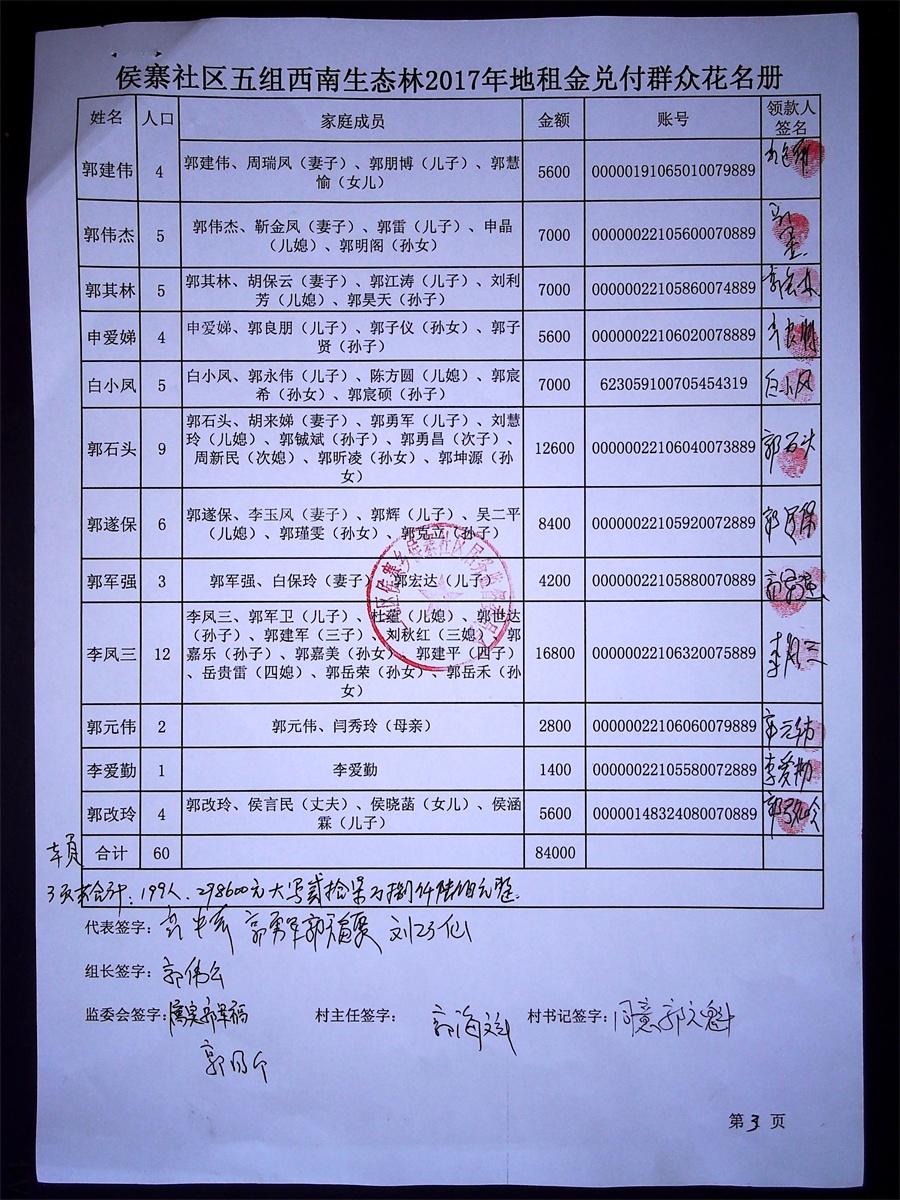 侯寨社区五组西南生态林2017年地租金兑付群众花名册
姓名 人口 家庭成员 金额 账号 领款人签名
郭建伟 4 郭建伟、周瑞凤（妻子）、郭朋博（儿子）、郭慧 5600 00000191065010079889
愉（女儿）
郭伟杰 5 郭伟杰、靳金凤（妻子）、郭雷（儿子）、申晶 7000 00000022105600070889
（儿媳）、郭明阁（孙女）
郭其林 5 郭其林、胡保云（妻子）、郭江涛（儿子）、刘利 7000 00000022105860074889
芳（儿媳）、郭昊天（孙子）
申爱娣 4 申爱娣、郭良朋（儿子）、郭子仪（孙女）、郭子 5600 00000022106020078889
贤（孙子）
白小凤 5 白小凤、郭永伟（儿子）、陈方圆（儿媳）、郭宸 7000 623059100705454319 白小凤
希（孙女）、郭宸硕（孙子）
郭石头 9 郭石头、胡来娣（妻子）、郭勇军（儿子）、刘慧 12600 00000022106040073889 郭石头
玲（儿媳）、郭铖斌（孙子）、郭勇昌（次子）、
周新民（次媳）、郭昕凌（孙女）、郭坤源（孙
女）
郭遂保 6 郭遂保、李玉凤（妻子）、郭辉（儿子）、吴二平 8400 00000022105920072889
（儿媳）、郭瑾雯（孙女）、郭克立（孙子）
郭军强 3 郭军强、白保玲（妻子）、郭宏达（儿子） 4200 00000022105880070889
李凤三 12 李凤三、郭军卫（儿子）、杜蕴（儿媳）、郭世达 16800 00000022106320075889 李凤三
（孙子）、郭建军（三子）、刘秋红（三媳）、郭
嘉乐（孙子）、郭嘉美（孙女）、郭建平（四子）
、岳贵雷（四媳）、郭岳荣（孙女）、郭岳禾（孙
女）
郭元伟 2 郭元伟、闫秀玲（母亲） 2800 00000022106060079889 郭元伟
李爱勤 1 李爱勤 1400 00000022105580072889 李爱勤
郭改玲 4 郭改玲、侯言民（丈夫）、侯晓菡（女儿）、侯涵 5600 00000148324080070889 郭改玲
霖（儿子）
合计 60 84000
3页共合计：199人、278600元大写贰拾柒万捌仟陆佰元整
代表签字：
组长签字：郭伟公
监委会签字： 村主任签字：郭海斌 村书记签字：同意郭文魁
第3页